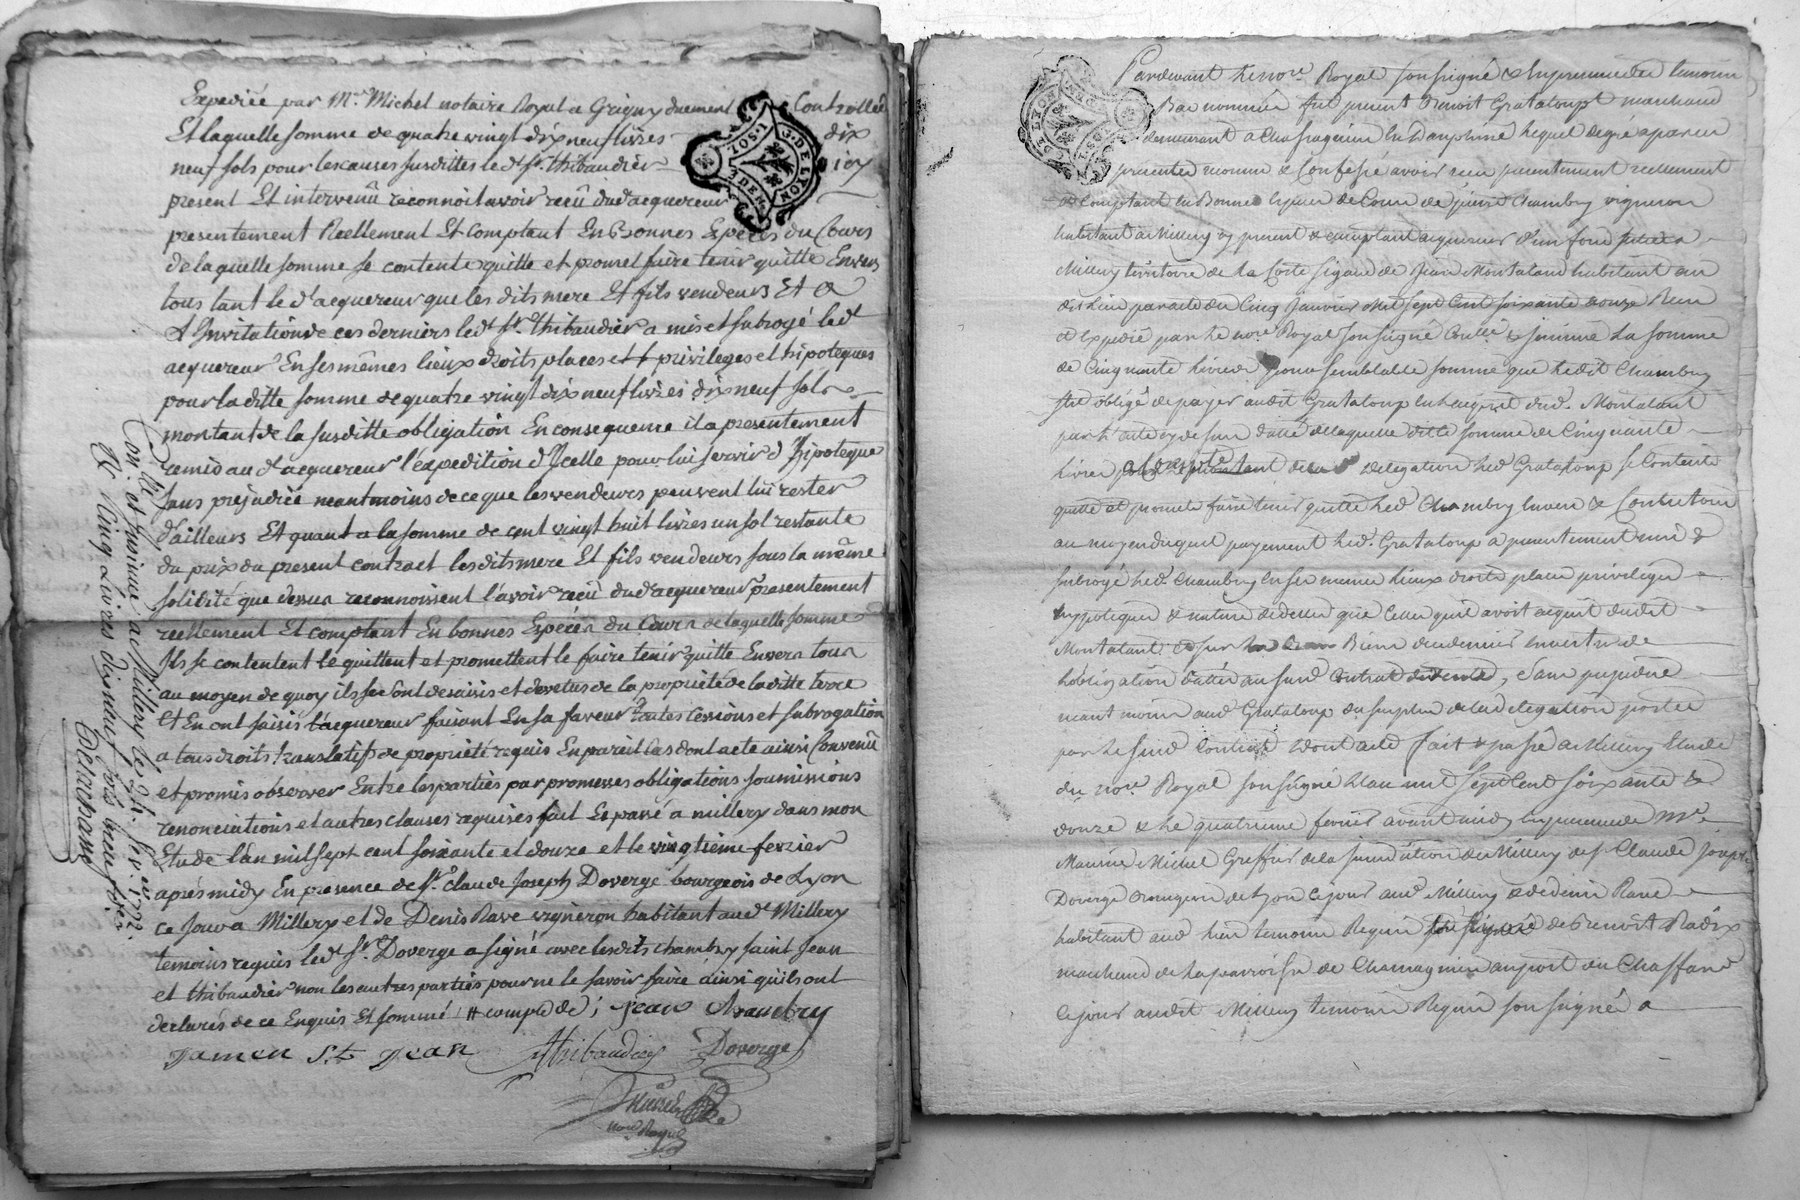 Expediée par Me. Michel notaire Royal a Grigny duement Controllée
Et laquelle somme de quatre vingt dix neuf livres dix
neuf sols pour les causes susdittes le dt. sr. thibaudier icy
present Et intervenû reconnoit avoir reçû dud acquereur
presentement Réellement Et comptant En Bonnes Espéces du Cours
de laquelle somme se contente quitte et promet faire tenir quitte Envers
tous tant le dt acquereur que les dits mere Et fils vendeurs Et a
L'Invitation de ces derniers ledt. sr. thibaudier a mis et subrogé ledt.
acquereur En ses mêmes lieux droits places et privileges et hipoteques
pour la ditte somme de quatre vingt dix neuf livres dix neuf sols
montant de la susditte obligation En consequence il a presentement
remis au dt acquereur l'expedition d'Jcelle pour lui servir d'hipoteque
sans prejudice neantmoins de ce que les vendeurs peuvent lui rester
d'ailleurs Et quant a la somme de cent vingt huit livres un sol restante
du prix du present contract les dits mere Et fils vendeurs sous la même
solidité que dessus reconnoissent l'avoir reçû dud acquereur presentement
réellement Et comptant En bonnes Espéces du Cours de laquelle somme
Ils se contentent le quittent et promettent le faire tenir quitte Envers tous
au moyen de quoy ils se sont desaisis et devetus de la propriété de laditte terre
Et En ont saisis l'acquereur faisant En sa faveur toutes cessions et subrogation
a tous droits translatifs de propriété requis En pareil cas dont acte ainsi Convenû
et promis observer Entre les parties par promesses obligations soumissions
renonciations et autres clauses requises fait Et passé a millery dans mon
Etude l'an mil sept cent soixante et douze et le vingtieme fevrier
après midy En presence de sr. Claude Joseph Doverge bourgeois de Lyon
ce jour a Millery et de Denis Rave vigneron habitant aud. Millery
temoins requis ledt sr. Doverge a signé avec lesdits chambry saint Jean
et thibaudier non les autres parties pour ne le savoir faire ainsi qu'ils ont
declarés de ce Enquis Et sommé # jean Chambry
Damen St Jean thibaudier Doverge
Michel
nore. Royal
Con. lé et Insinué a Millery le 21. fev. 1772.
R. Cinq Livres dix neuf sols
Delachana
1.SOL 3.D
DE LYON
Pardevant le nore. Royal soussigné & En presence des temoins
Bas nommés fut present Benoit Grataloup marchand
demeurant a Chasseagnieu En Dauphiné lequel de gré a par ces
presentes reconnu & Confessé avoir reçu presentement réellement
& Comptant En Bonnes Espèces de Cours de pierre Chambry vigneron
habitant a Millery icy present & acceptant acquereur d'un fond scitué a
Millery territoire de la Coste de Jean Montaland habitant au
dit Lieu par acte du Cinq Janvier Mil sept Cent soixante douze Reçu
& Expédié par le nore. Royal soussigné Coullé & Insinué La somme
de Cinquante Livres pour semblable somme que ledit Chambry
s'est obligé de payer audit Grataloup En l'acquit dud. Montalant
par l'acte cy dessus datté de laquelle ditte somme de Cinquante
livres delegation led Grataloup se Contente
quitte et promet faire tenir quitte led Chambry Envers & Contre tous
au moyen duquel payement led. Grataloup a presentement mis &
subrogé led Chambry En ses memes Lieux droits places privileges
hyppoteques & nature de dettes que Celles qu'il avoit acquit dudit
Montalant & sur Biens de ce dernier En vertu de
L'obligation dattée au susd Contrat de vente, sans prejudice
neant moins aud Grataloup du surplus de la delegation portée
par le susd Contrat dont acte fait & passé a Millery Etude
du nore. Royal soussigné L'an mil sept Cent soixante &
douze & le quatrieme fevrier avant midy En presence de Me.
Maurice Michel Greffier de la Jurisdiction de Millery de sr Claude Joseph
Doverge Bourgeois de Lyon Ce jour aud. Millery & de denis Rave
habitant aud lieu temoins Requis de Benoit Radix
marchand de la parroisse de Chamagnieu
Ce jour audit Millery temoins Requis soussigné a
DE LYON
1.SOL